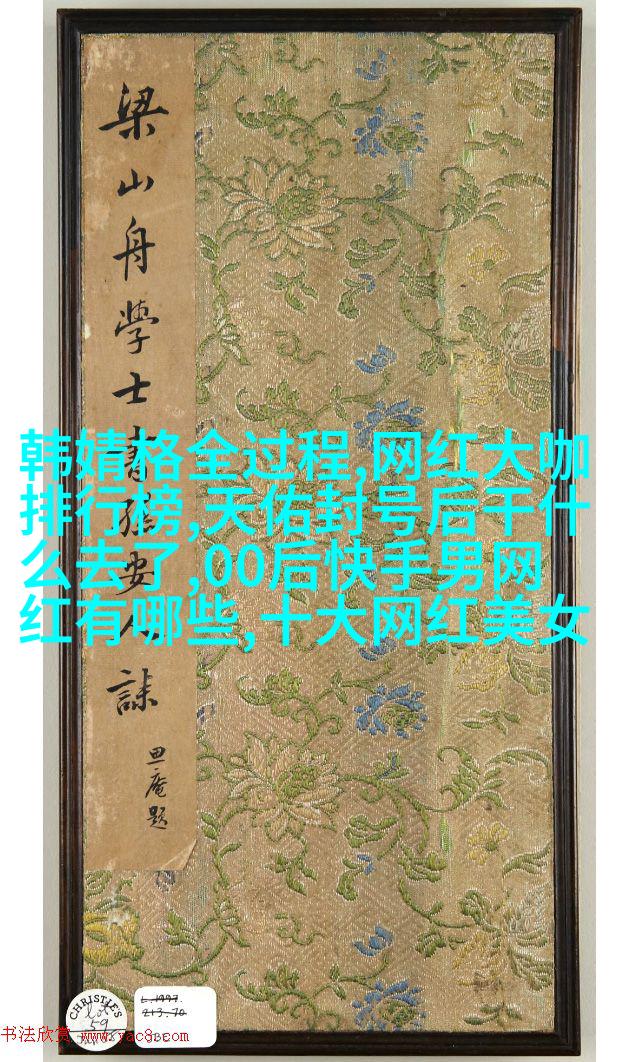 梁山舟學士書孫安人誄
庵題
韩婧格全过程,网红大咖
排行榜,天佑封号后干什
么去了,00后快手男网
红有哪些,十大网红美女
CHRISTIE'S
lot
59
L.1997.
213.70
书法欣赏 www.yac8.com